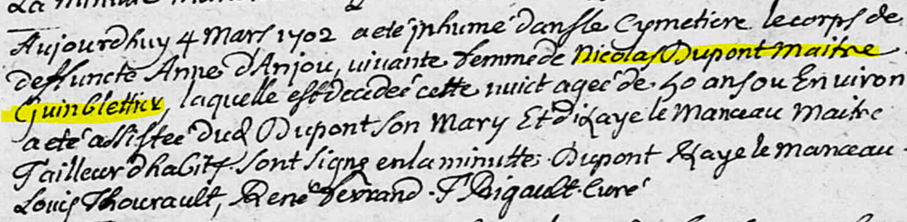 La minutte
Aujourdhuy 4 Mars 1702 a eté inhumé dans le Cymetiere le corps de
deffuncte Anne d'Anjou, vivante femme de Nicolas Dupont maitre
Guinblettier, laquelle est decedée cette nuict ageé de 40 ans ou Environ
a eté assistée dud Dupont son Mary Et d
 le Manceau Maitre
Tailleur d'habits sont signé en la minutte. Dupont le Manceau.
Louis Thourault, René ferrand. F Rigault. Curé